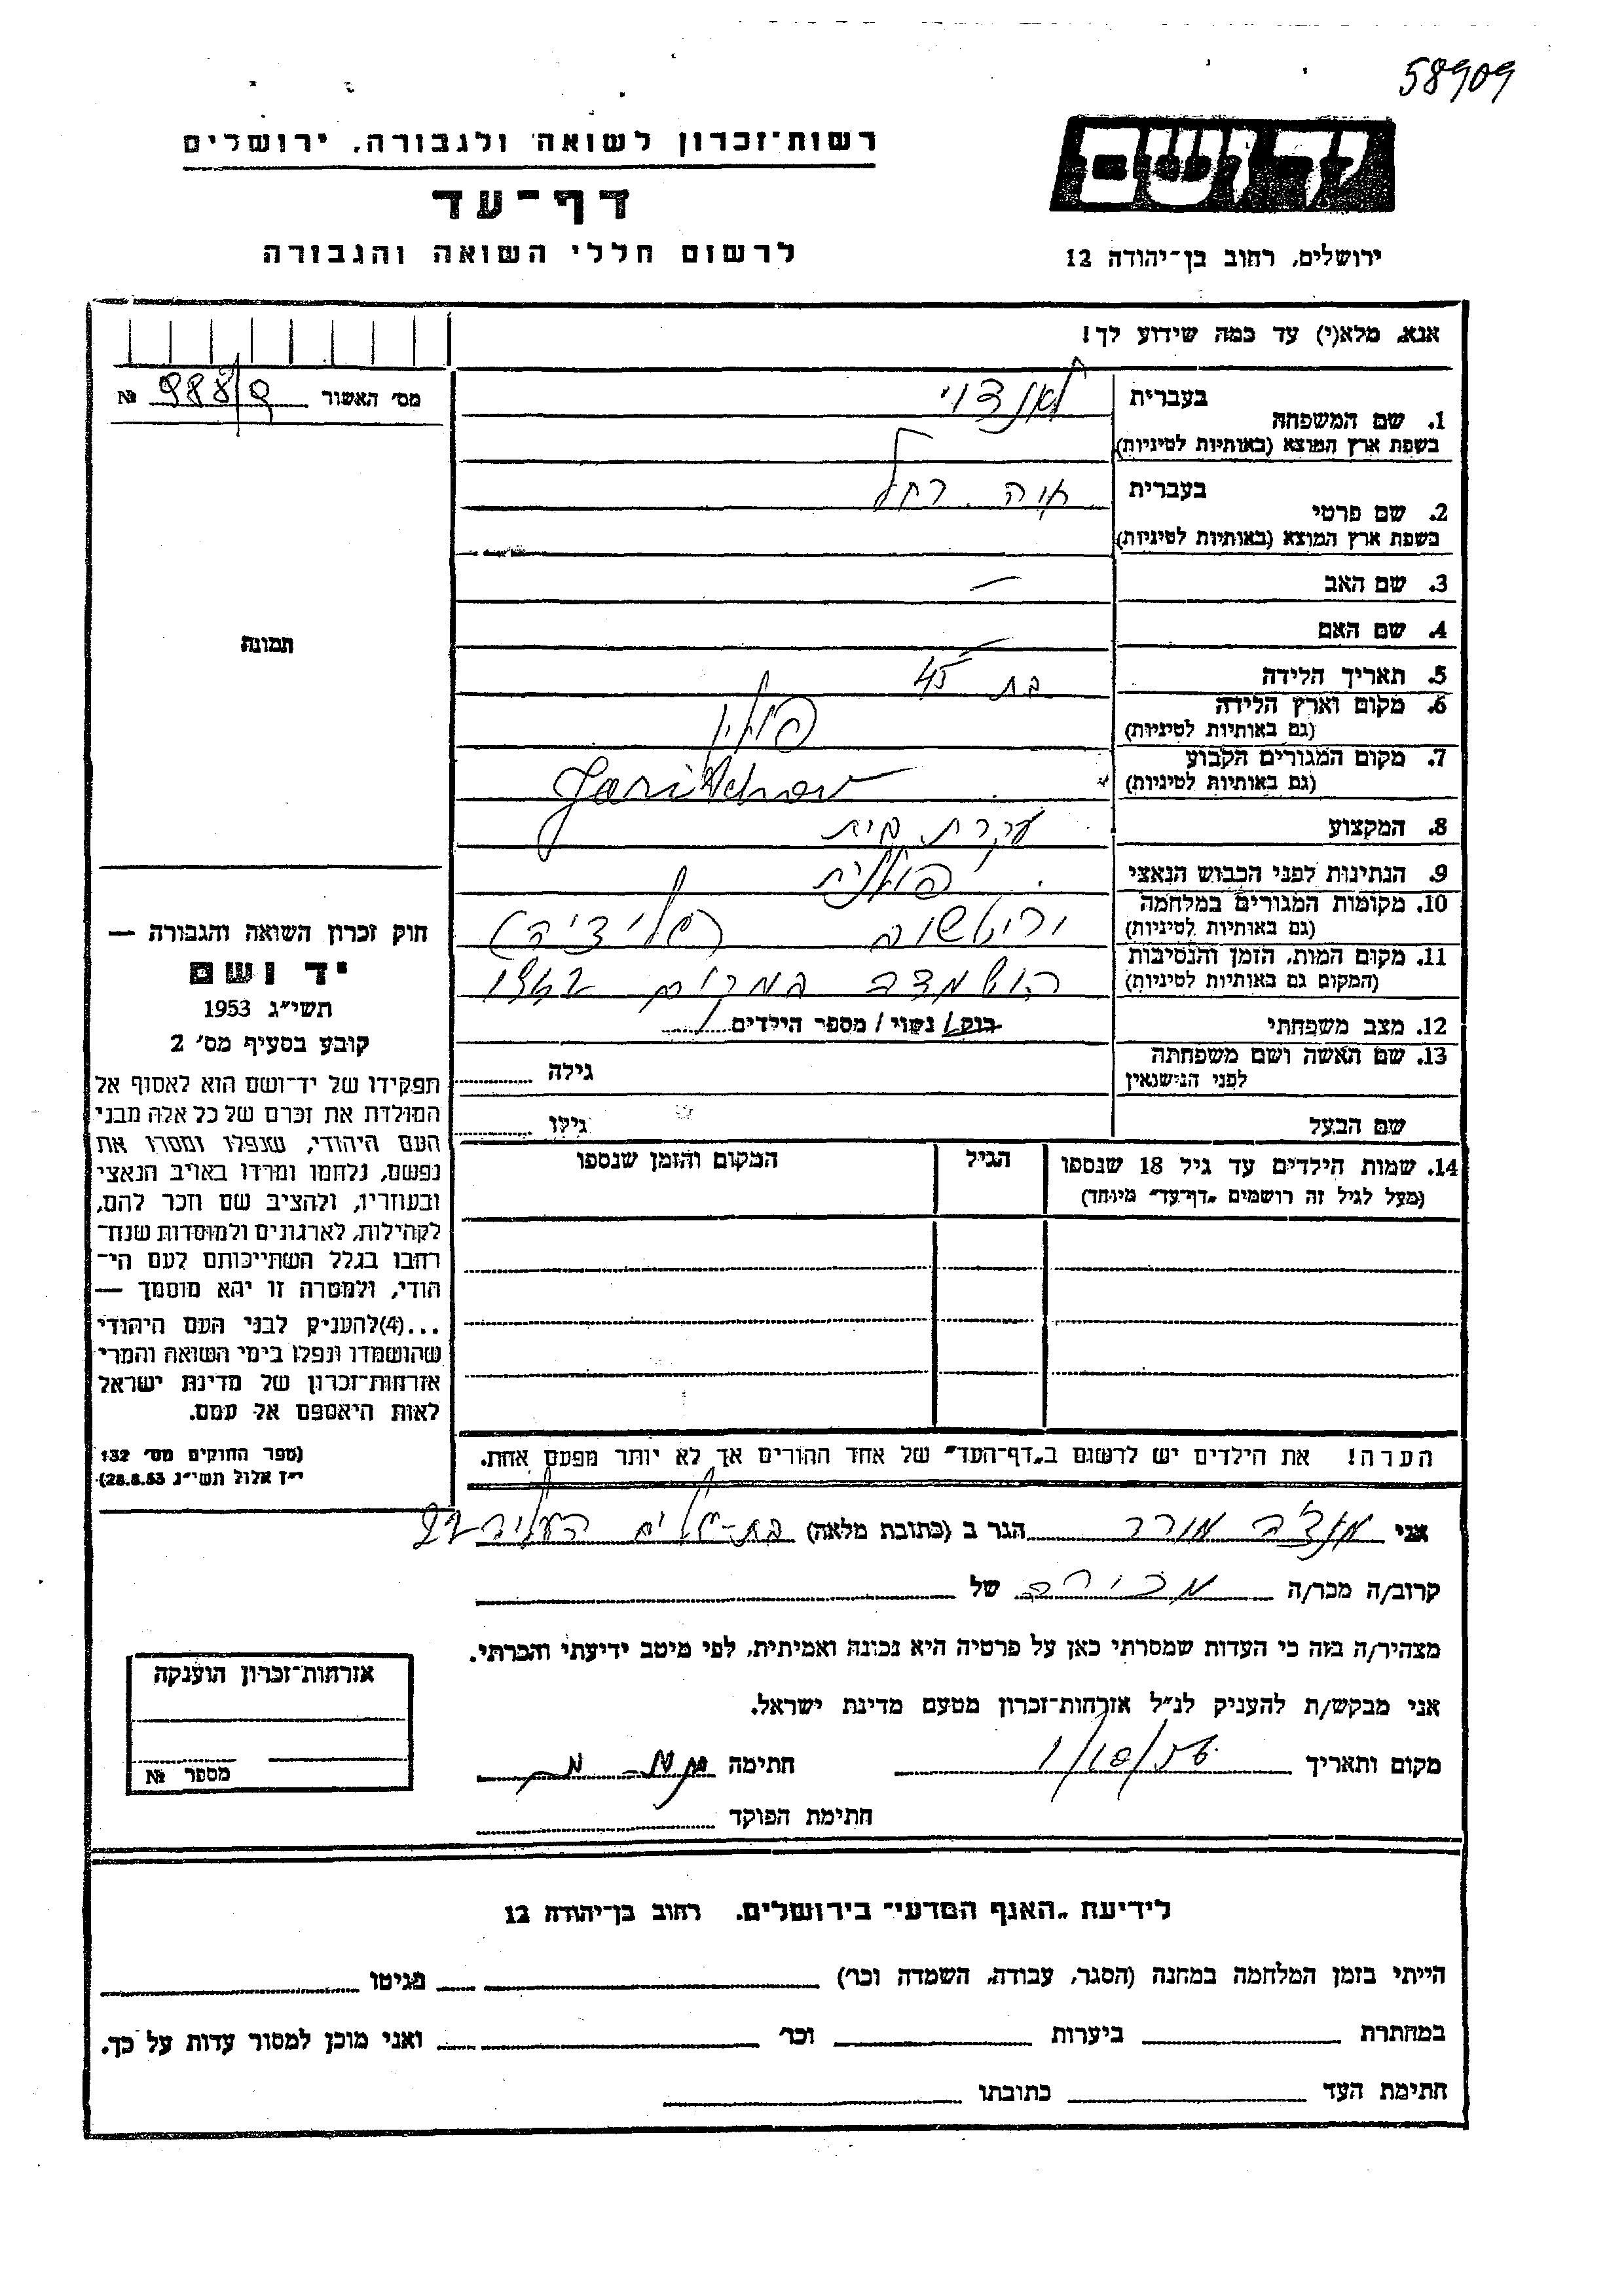 58909
רשות־זכרון לשואה ולגבורה, ירושלים
דף־עד
לרשום חללי השואה והגבורה
יד ושם
ירושלים, רחוב בן־יהודה 12
אנא, מלא(י) עד כמה שידוע לך!
מס׳ האשור 988/9 №
בעברית
1. שם המשפחה
בשפת ארץ המוצא (באותיות לטיניות)
בעברית רחל
2. שם פרטי
בשפת ארץ המוצא (באותיות לטיניות)
3. שם האב –
4. שם האם –
5. תאריך הלידה בת 45
6. מקום וארץ הלידה פולין
(גם באותיות לטיניות)
7. מקום המגורים הקבוע
(גם באותיות לטיניות)
8. המקצוע עקרת בית
9. הנתינות לפני הכבוש הנאצי פולנית
10. מקומות המגורים במלחמה
(גם באותיות לטיניות)
11. מקום המות, הזמן והנסיבות הושמדה במקום 1942
(המקום גם באותיות לטיניות)
12. מצב משפחתי רוק / נשוי / מספר הילדים
13. שם האשה ושם משפחתה
לפני הנישואין גילה
שם הבעל גילו
14. שמות הילדים עד גיל 18 שנספו
(מעל לגיל זה רושמים „דף־עד” מיוחד)
הגיל
המקום והזמן שנספו
תמונה
חוק זכרון השואה והגבורה —
יד ושם
תשי״ג 1953
קובע בסעיף מס׳ 2
תפקידו של יד־ושם הוא לאסוף אל
המולדת את זכרם של כל אלה מבני
העם היהודי, שנפלו ומסרו את
נפשם, נלחמו ומרדו באויב הנאצי
ובעוזריו, ולהציב שם וזכר להם,
לקהילות, לארגונים ולמוסדות שנח־
רחבו בגלל השתייכותם לעם הי־
הודי, ולמטרה זו יהא מוסמך —
...(4)להעניק לבני העם היהודי
שהושמדו ונפלו בימי השואה והמרי
אזרחות־זכרון של מדינת ישראל
לאות היאספם אל עמם.
(ספר החוקים מס׳ 132
י״ז אלול תשי״ג 28.8.53)
הערה! את הילדים יש לרשום ב„דף־העד” של אחד ההורים אך לא יותר מפעם אחת.
אני הגר ב (כתובת מלאה)
קרוב/ה מכר/ה מכירה של
מצהיר/ה בזה כי העדות שמסרתי כאן על פרטיה היא נכונה ואמיתית, לפי מיטב ידיעתי והכרתי.
אני מבקש/ת להעניק לנ״ל אזרחות־זכרון מטעם מדינת ישראל.
מקום ותאריך חתימה
חתימת הפוקד
אזרחות־זכרון הוענקה
מספר №
לידיעת „האגף המדעי” בירושלים, רחוב בן־יהודה 12
הייתי בזמן המלחמה במחנה (הסגר, עבודה, השמדה וכו׳) בגיטו
במחתרת ביערות וכו׳ ואני מוכן למסור עדות על כך.
חתימת העד כתובתו